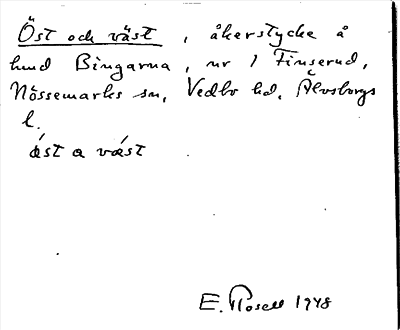 Öst och väst, åkerstycke å
hmd Bingarna, nr 1 Finserud,
Nössemarks sn, Vedbo hd, Älvsborgs
l.
ǿst a vǽst
E. Rosell 1948